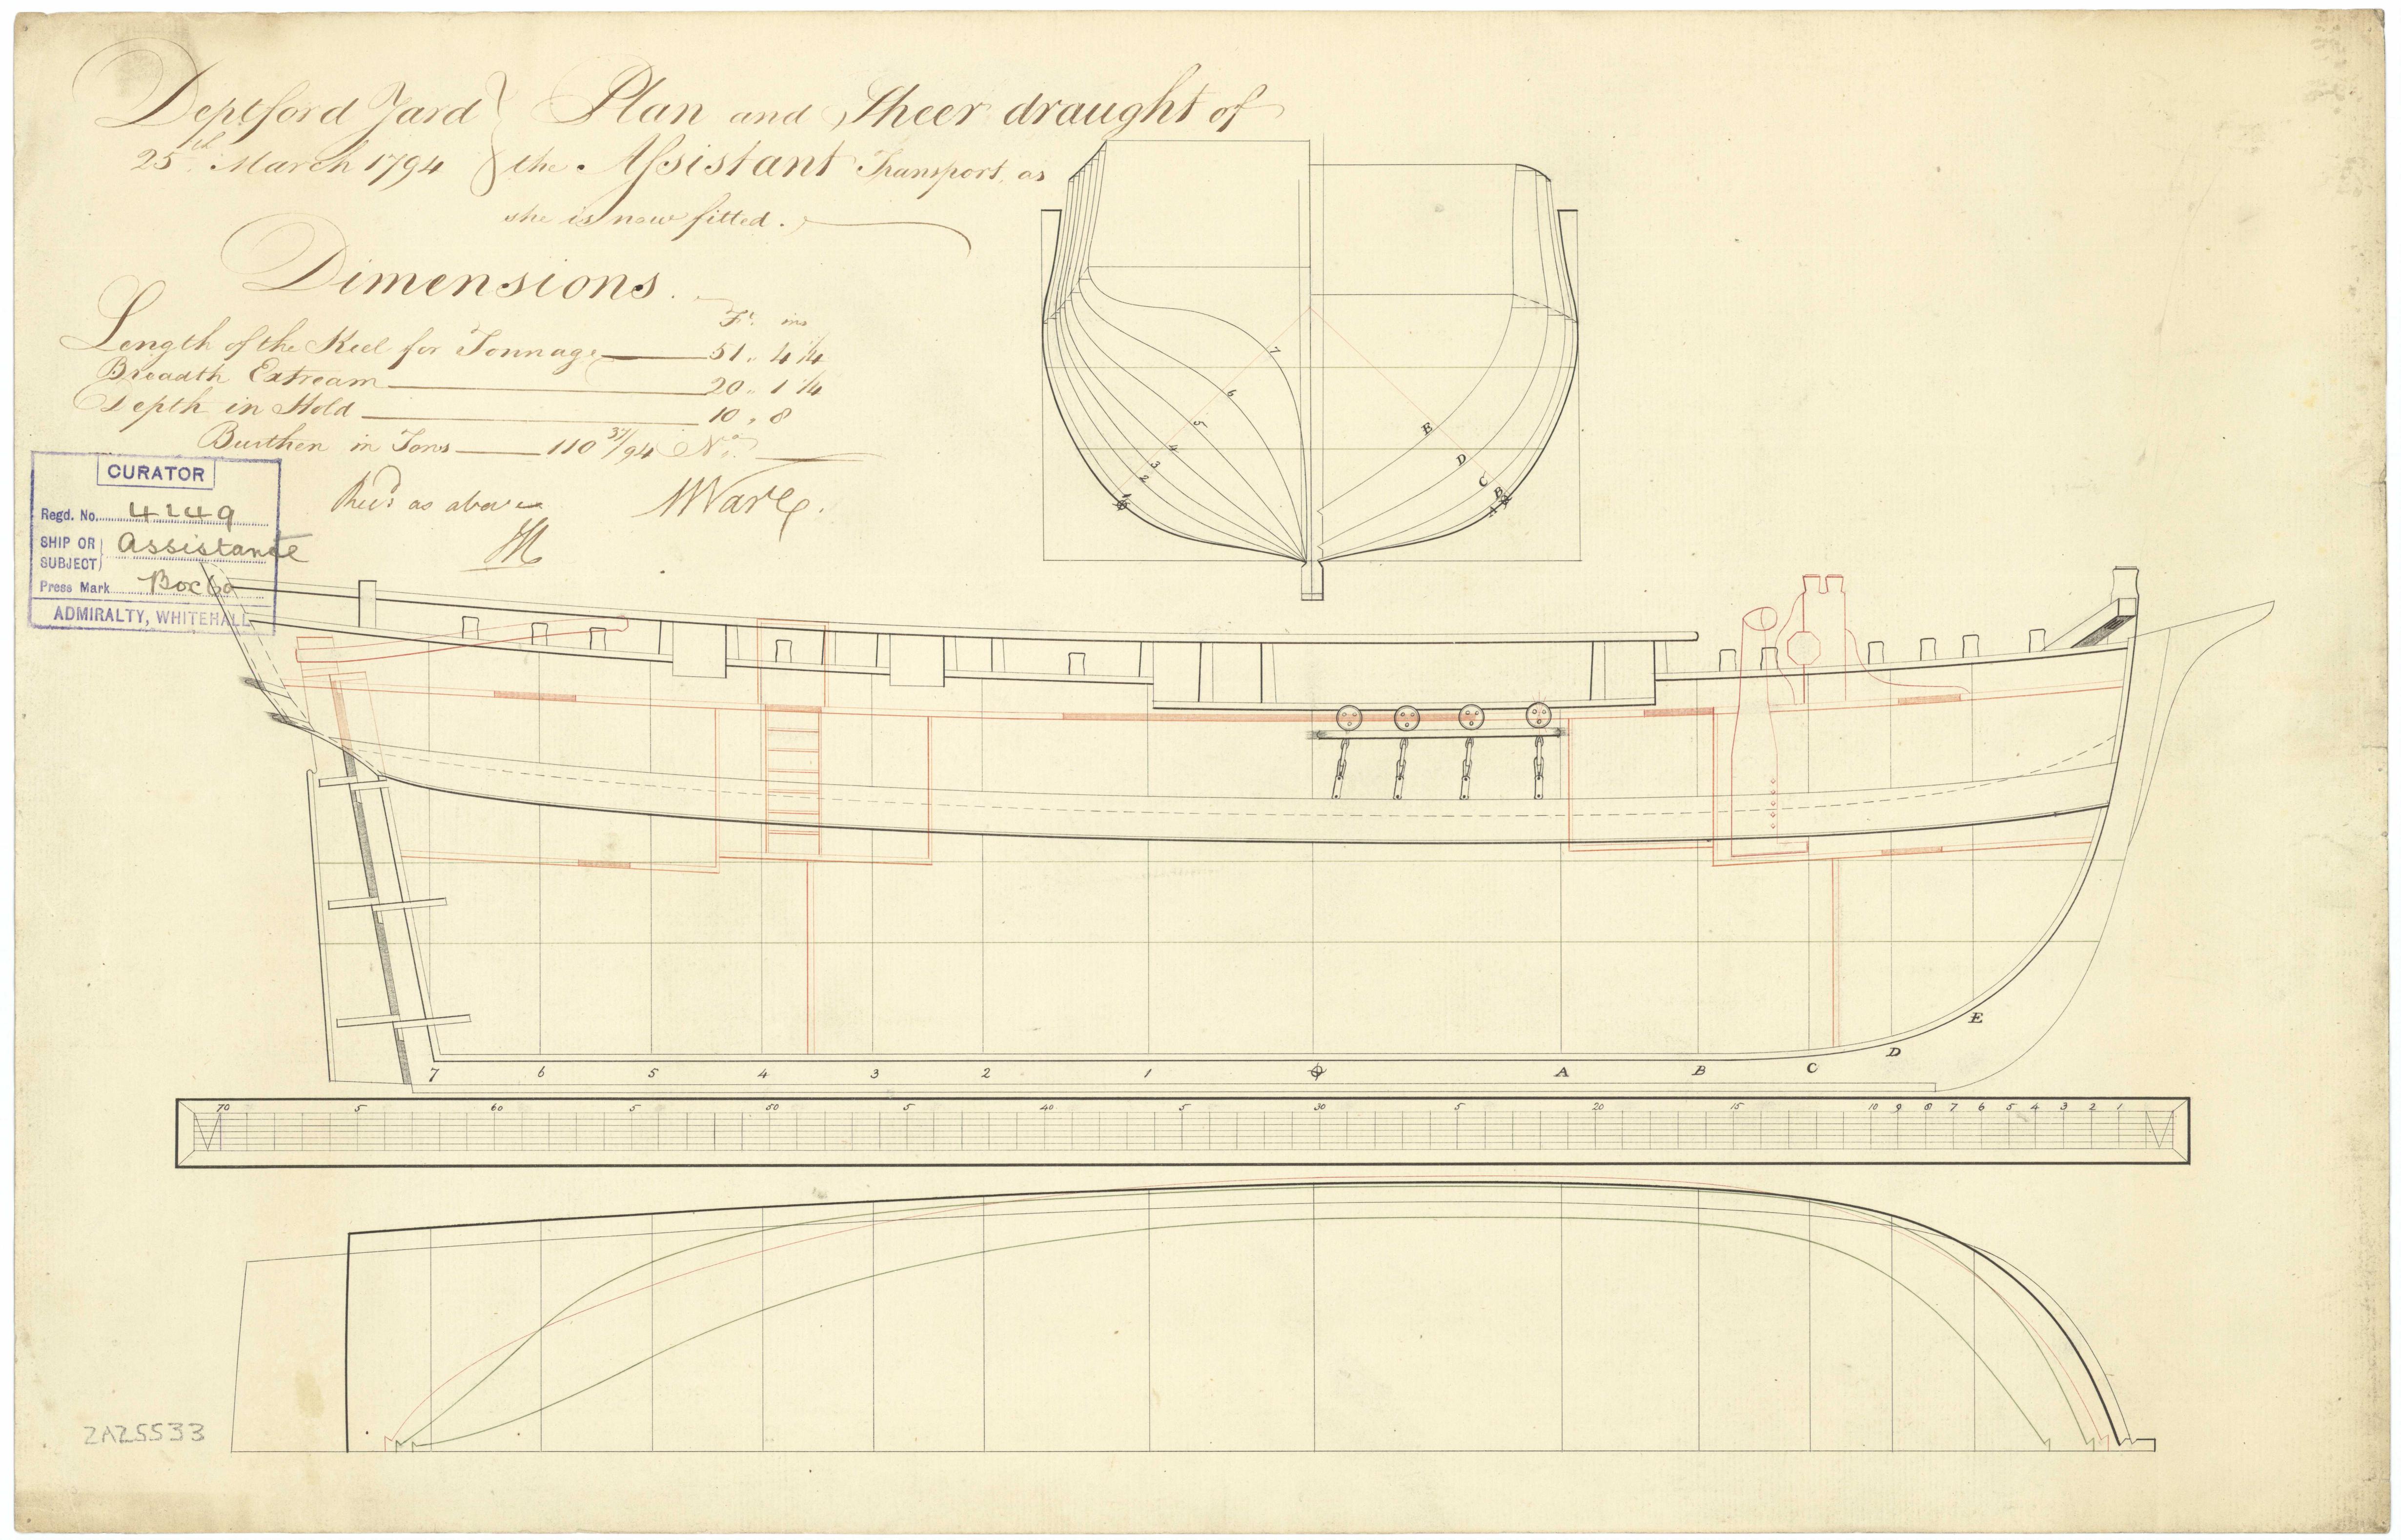 Deptford Yard } Plan and Sheer draught of
25th March 1794 the Assistant Transport, as
she is now fitted.
Dimensions.
Ft. ins
Length of the Keel for Tonnage 51 .. 4 1/4
Broadth Extream 20 .. 1 1/4
Depth in Hold 10 .. 8
Burthen in Tons 110 37/94 No.
Recd as above
CURATOR
Regd. No. 4249
SHIP OR SUBJECT} Assistance
Press Mark Box 60
ADMIRALTY, WHITEHALL
7 6 5 4 3 2 1
E D C B
E
D
7 6 5 4 3 2 1 A B C
70 5 60 5 50 5 40 5 30 5 20 15 10 9 8 7 6 5 4 3 2 1
ZAZ5533